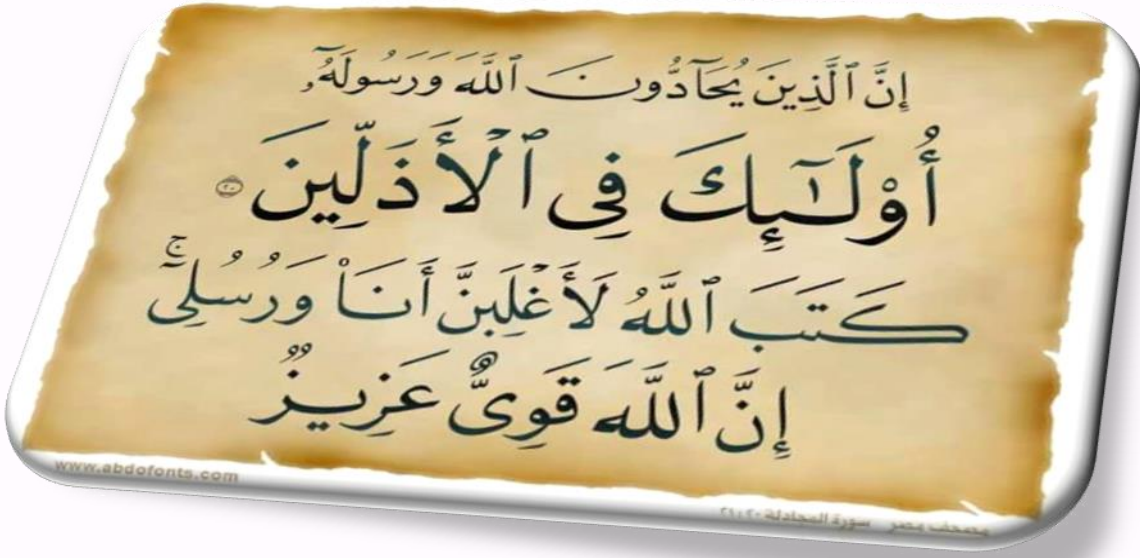 إِنَّ ٱلَّذِينَ يُحَآدُّونَ ٱللَّهَ وَرَسُولَهُۥٓ
أُو۟لَـٰٓئِكَ فِى ٱلْأَذَلِّينَ ٢٠
كَتَبَ ٱللَّهُ لَأَغْلِبَنَّ أَنَا۠ وَرُسُلِىٓ ۚ
إِنَّ ٱللَّهَ قَوِىٌّ عَزِيزٌ
www.abdofonts.com
مصحف مصر سورة المجادلة ٢٠-٢١